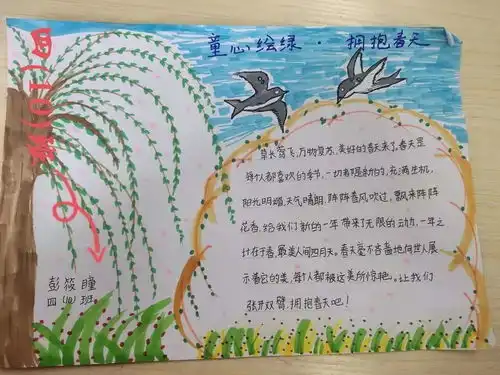 童心绘绿·拥抱春天
四(10)班
草长莺飞,万物复苏,美好的春天来了,春天是
每个人都喜欢的季节,一切都是新的,充满生机,
阳光明媚,天气晴朗,阵阵春风吹过,飘来阵阵
花香,给我们新的一年带来了无限的动力,一年之
计在于春,最美人间四月天。春天毫不吝啬地向世人展
示着它的美,每个人都被这美所惊艳。让我们
张开双臂,拥抱春天吧!
彭筱瞳
四(10)班